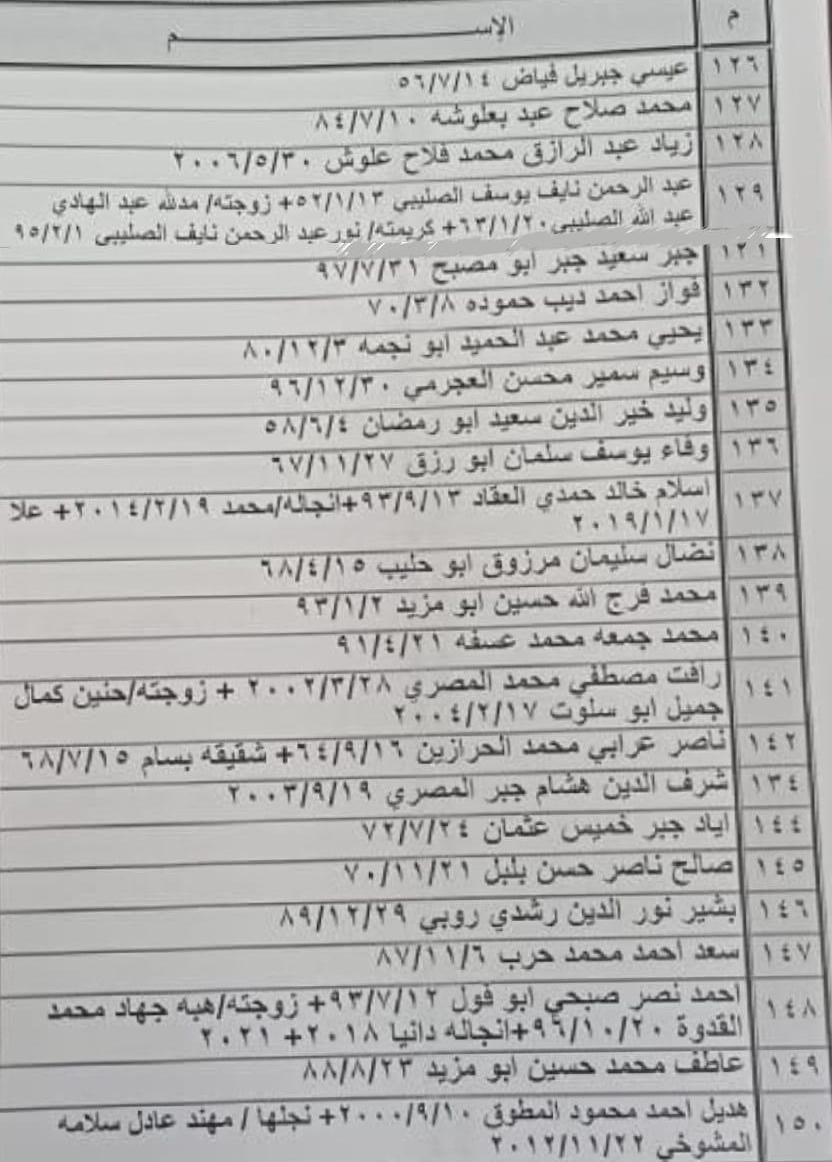 م الإســــــــــم
١٢٦ عيسي جبريل فياض ٥٦/٧/١٤
١٢٧ محمد صلاح عبد بعلوشه ٨٤/٧/١٠
١٢٨ زياد عبد الرازق محمد فلاح علوش ٢٠٠٦/٥/٣٠
١٢٩ عبد الرحمن نايف يوسف الصليبي ٥٢/١/١٣+ زوجته/ مدلله عبد الهادي
عبد الله الصليبى ٦٣/١/٢٠+ كريمته/ نور عبد الرحمن نايف الصليبى ٩٥/٢/١
١٢١ جبر سعيد جبر ابو مصبح ٩٧/٧/٣١
١٣٢ فواز احمد ديب حموده ٧٠/٣/٨
١٣٣ يحيي محمد عبد الحميد ابو نجمه ٨٠/١٢/٣
١٣٤ وسيم سمير محسن العجرمي ٩٦/١٢/٣٠
١٣٥ وليد خير الدين سعيد ابو رمضان ٥٨/٦/٤
١٣٦ وفاء يوسف سلمان ابو رزق ٦٧/١١/٢٧
١٣٧ اسلام خالد حمدي العقاد ٩٣/٩/١٣+انجاله/محمد ٢٠١٤/٢/١٩+ علا
٢٠١٩/١/١٧
١٣٨ نضال سليمان مرزوق ابو حليب ٦٨/٤/١٥
١٣٩ محمد فرج الله حسين ابو مزيد ٩٣/١/٢
١٤٠ محمد جمعه محمد عسفه ٩١/٤/٢١
١٤١ رافت مصطفي محمد المصري ٢٠٠٢/٣/٢٨ + زوجته/حنين كمال
جميل ابو سلوت ٢٠٠٤/٢/١٧
١٤٢ ناصر عرابي محمد الحرازين ٦٤/٩/١٦+ شقيقه بسام ٦٨/٧/١٥
١٣٤ شرف الدين هشام جبر المصري ٢٠٠٣/٩/١٩
١٤٤ اياد جبر خميس عثمان ٧٢/٧/٢٤
١٤٥ صالح ناصر حسن بلبل ٧٠/١١/٢١
١٤٦ بشير نور الدين رشدي روبي ٨٩/١٢/٢٩
١٤٧ سعد احمد محمد حرب ٨٧/١١/٦
١٤٨ احمد نصر صبحي ابو فول ٩٣/٧/١٢+ زوجته/هبه جهاد محمد
القدوة ٩٦/١٠/٢٠+انجاله دانيا ٢٠١٨+ ٢٠٢١
١٤٩ عاطف محمد حسين ابو مزيد ٨٨/٨/٢٣
١٥٠ هديل احمد محمود المطوق ٢٠٠٠/٩/١٠+ نجلها / مهند عادل سلامه
المشوخي ٢٠١٢/١١/٢٢